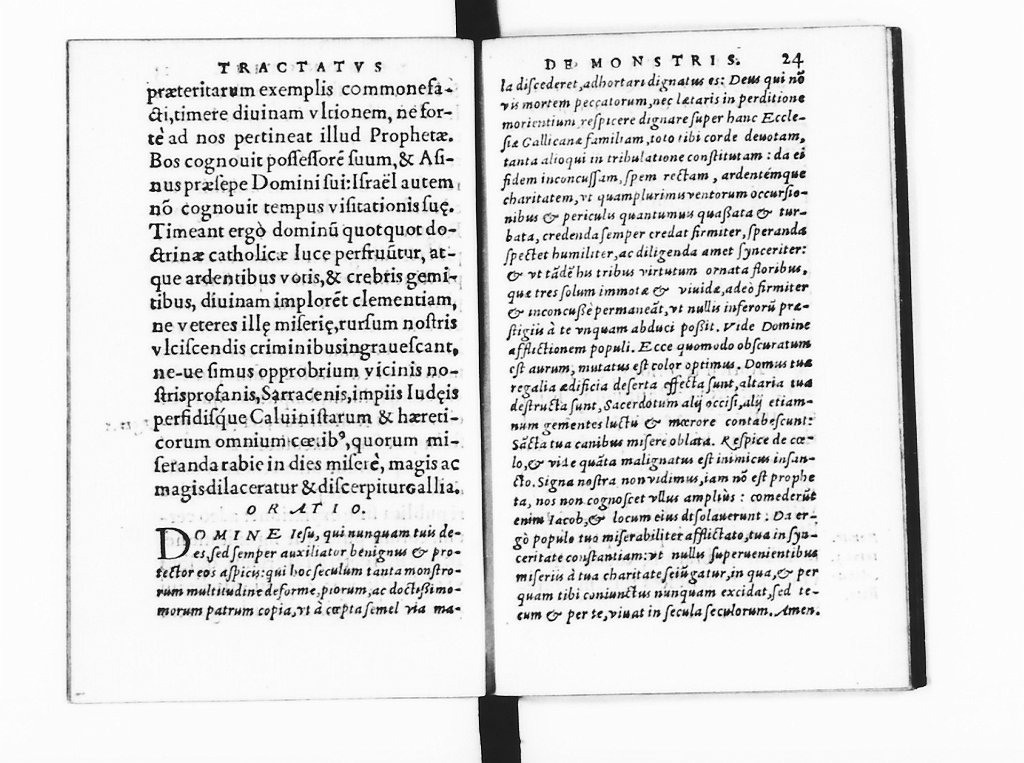 TRACTATVS
præteritarum exemplis commonefa-
cti, timere diuinam vltionem, ne for-
tè ad nos pertineat illud Prophetæ.
Bos cognouit possessorē suum, & Asi-
nus præsepe Domini sui: Israël autem
nō cognouit tempus visitationis suę.
Timeant ergò dominū quotquot do-
ctrinæ catholicæ luce perfruūtur, at-
que ardentibus votis, & crebris gemi-
tibus, diuinam implorēt clementiam,
ne veteres illę miserię, rursum nostris
vlciscendis criminibus ingrauescant,
ne-ue simus opprobrium vicinis no-
stris profanis, Sarracenis, impiis Iudęis
perfidisq́ue Caluinistarum & hæreti-
corum omnium cœtibꝰ, quorum mi-
seranda rabie in dies miserè, magis ac
magis dilaceratur & discerpitur Gallia.
ORATIO.
DOMINE Iesu, qui nunquam tuis de-
es, sed semper auxiliator benignus & pro-
tector eos aspicis: qui hoc seculum tanta monstro-
rum multitudine deforme, piorum, ac doctißimo-
morum patrum copia, vt à cœpta semel via ma-
DE MONSTRIS. 24
la discederet, adhortari dignatus es: Deus qui nō
vis mortem peccatorum, nec lætaris in perditione
morientium, respicere dignare super hanc Eccle-
siæ Gallicanæ familiam, toto tibi corde deuotam,
tanta alioqui in tribulatione constitutam: da ei
fidem inconcussam, spem rectam, ardentemque
charitatem, vt quamplurimis ventorum occursio-
nibus & periculis quantumuis quaßata & tur-
bata, credenda semper credat firmiter, speranda
spectet humiliter, ac diligenda amet synceriter:
& vt tādē his tribus virtutum ornata floribus,
quæ tres solum immotæ & viuidæ, adeò firmiter
& inconcussè permaneāt, vt nullis inferorū præ-
stigiis à te vnquam abduci poßit. Vide Domine
afflictionem populi. Ecce quomodo obscuratum
est aurum, mutatus est color optimus. Domus tua
regalia ædificia deserta effecta sunt, altaria tua
destructa sunt, Sacerdotum alij occisi, alij etiam-
num gementes luctu & mœrore contabescunt:
Sācta tua canibus misere oblata. Respice de cœ-
lo, & vide quāta malignatus est inimicus in san-
cto. Signa nostra non vidimus, iam nō est prophe
ta, nos non cognoscet vllus amplius: comederūt
enim Iacob, & locum eius dtsolauerunt: Da er-
gò populo tuo miserabiliter afflictato, tua in syn-
ceritate constantiam: vt nullis superuenientibus
miseriis à tua charitate seiūgatur, in qua, & per
quam tibi coniunctus nunquam excidat, sed te-
cum & per te, viuat in secula seculorum. Amen.